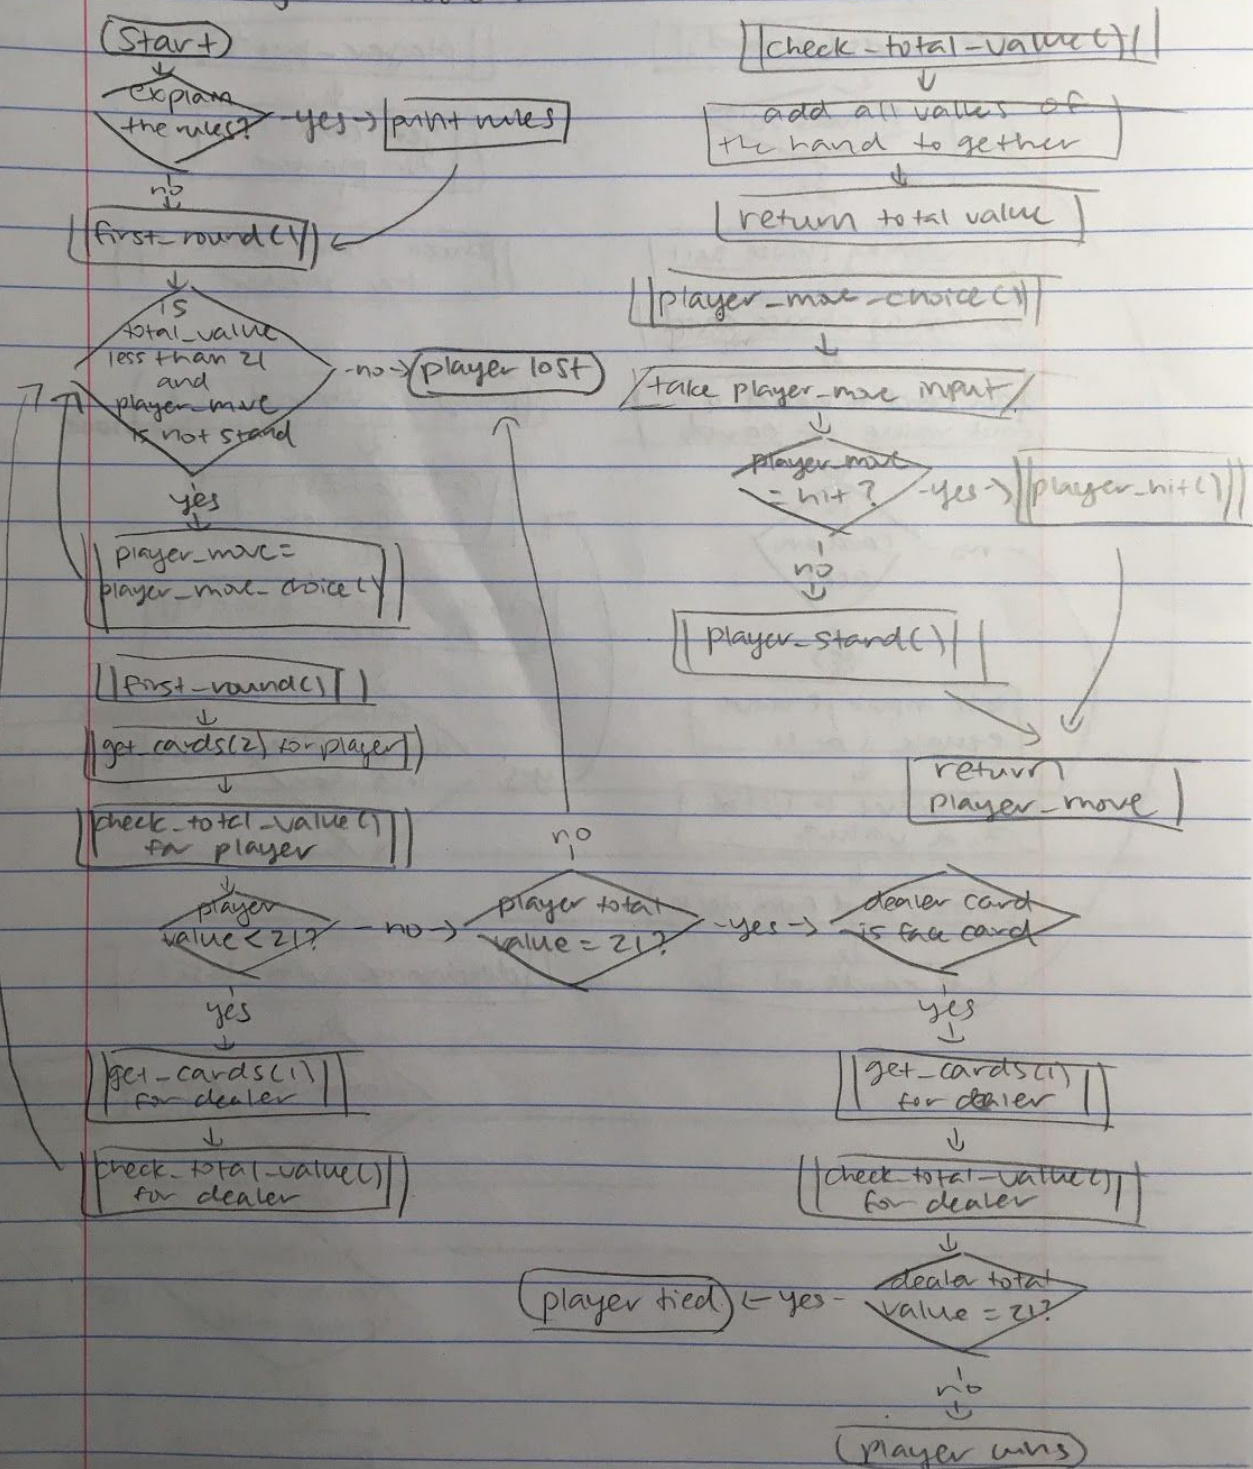 Start
explain
the rules?
yes
print rules
no
first_round()
is
total_value
less than 21
and
player_move
is not stand
no
player lost
yes
player_move =
player_move_choice()
first_round()
get_cards(2) for player
check_total_value()
for player
player
value < 21?
no
player total
value = 21?
no
yes
dealer card
is face card
yes
get_cards(1)
for dealer
check_total_value()
for dealer
yes
get_cards(1)
for dealer
check_total_value()
for dealer
dealer total
value = 21?
yes
player tied
no
player wins
check_total_value()
add all values of
the hand to gether
return total value
player_move_choice()
take player_move input
player_move
= hit?
yes
player_hit()
no
player_stand()
return
player_move